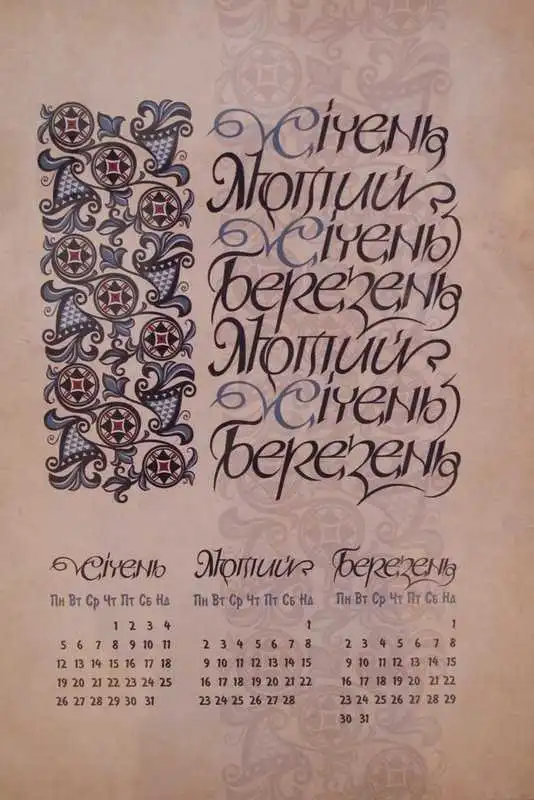 Січень
Лютий
Січень
Березень
Лютий
Січень
Березень
Січень
Пн Вт Ср Чт Пт Сб Нд
1 2 3 4
5 6 7 8 9 10 11
12 13 14 15 16 17 18
19 20 21 22 23 24 25
26 27 28 29 30 31
Лютий
Пн Вт Ср Чт Пт Сб Нд
1
2 3 4 5 6 7 8
9 10 11 12 13 14 15
16 17 18 19 20 21 22
23 24 25 26 27 28
Березень
Пн Вт Ср Чт Пт Сб Нд
1
2 3 4 5 6 7 8
9 10 11 12 13 14 15
16 17 18 19 20 21 22
23 24 25 26 27 28 29
30 31